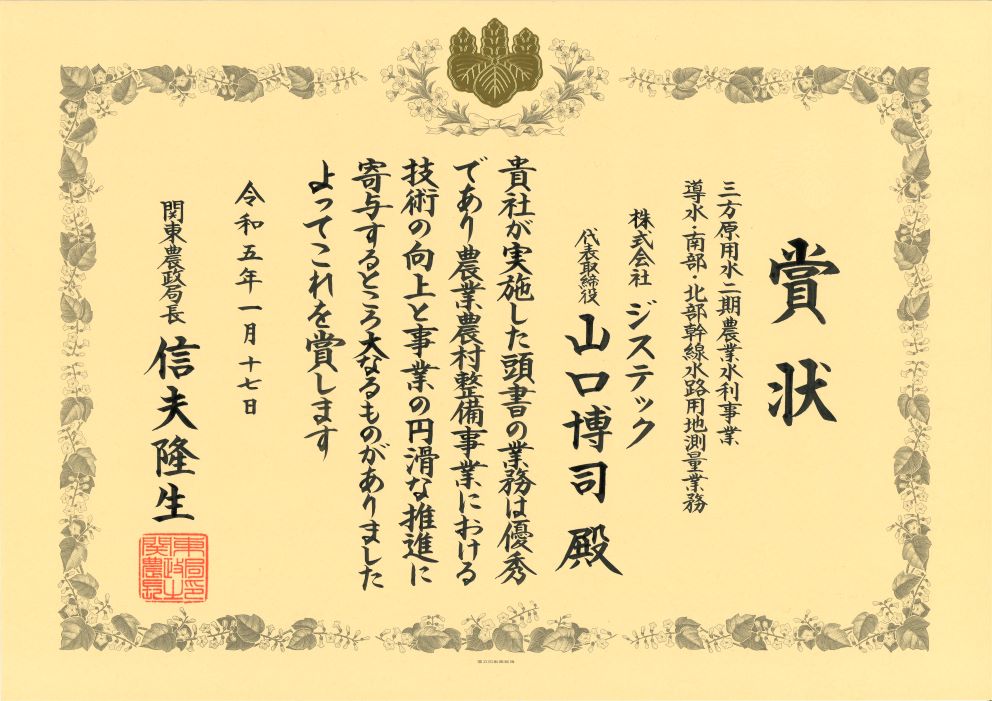 賞状
三方原用水二期農業水利事業
導水・南部・北部幹線水路用地測量業務
株式会社 ジステック
代表取締役 山口博司 殿
貴社が実施した頭書の業務は優秀
であり農業農村整備事業における
技術の向上と事業の円滑な推進に
寄与するところ大なるものがありました
よってこれを賞します
令和五年一月十七日
関東農政局長 信夫隆生